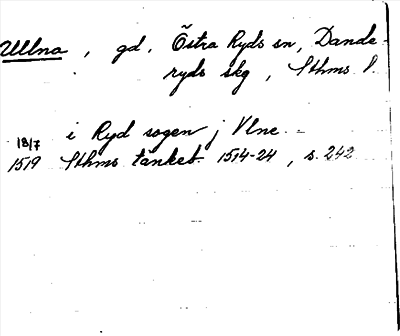 Ullna, gd, Östra Ryds sn, Dande-
ryds skg, Sthms l.
18/7 i Ryd sogen j Vlne. -
1519 Sthms tänkeb. 1514-24, s. 242